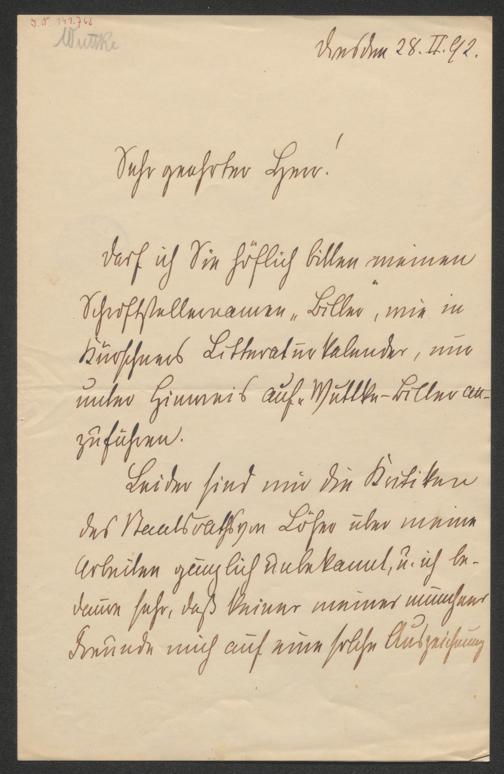 I.N. 141.762
Wuttke
Dresden 28. II. 92.
Sehr geehrter Herr!
Darf ich Sie höflich bitten meinen
Schriftstellernamen „Biller", wie in
Kürschners Litteraturkalender, nur
unter Hinweis auf „Wuttke-Biller an-
zuführen.
Leider sind mir die Kritiken
des Staatsraths von Löher über meine
Arbeiten gänzlich unbekannt, u. ich be-
daure sehr, daß keiner meiner münchner
Freunde mich auf eine solche Auszeichnung